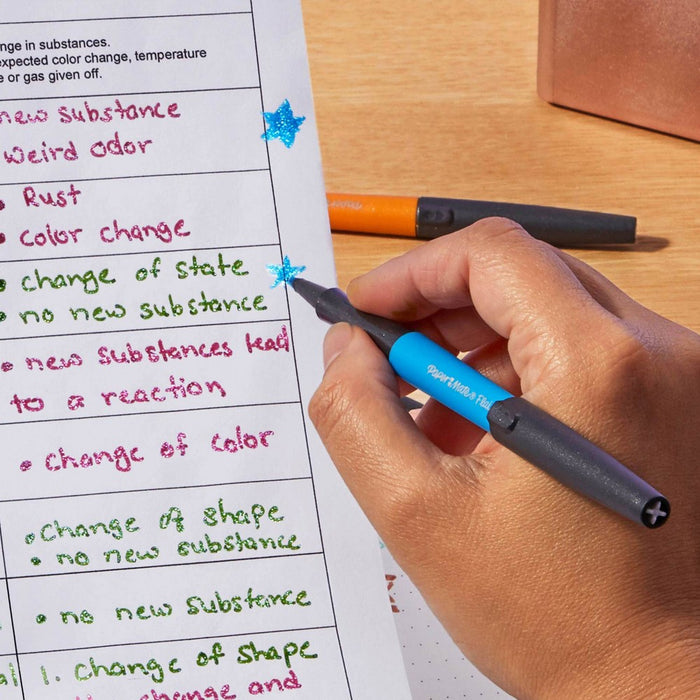 nge in substances.
xpected color change, temperature
e or gas given off.
new substance
weird odor
• Rust
• color change
• change of state
• no new substance
• new substances lead
to a reaction
• change of color
• change of shape
• no new substance
• no new substance
al 1. change of shape
change and
Paper Mate® Flair